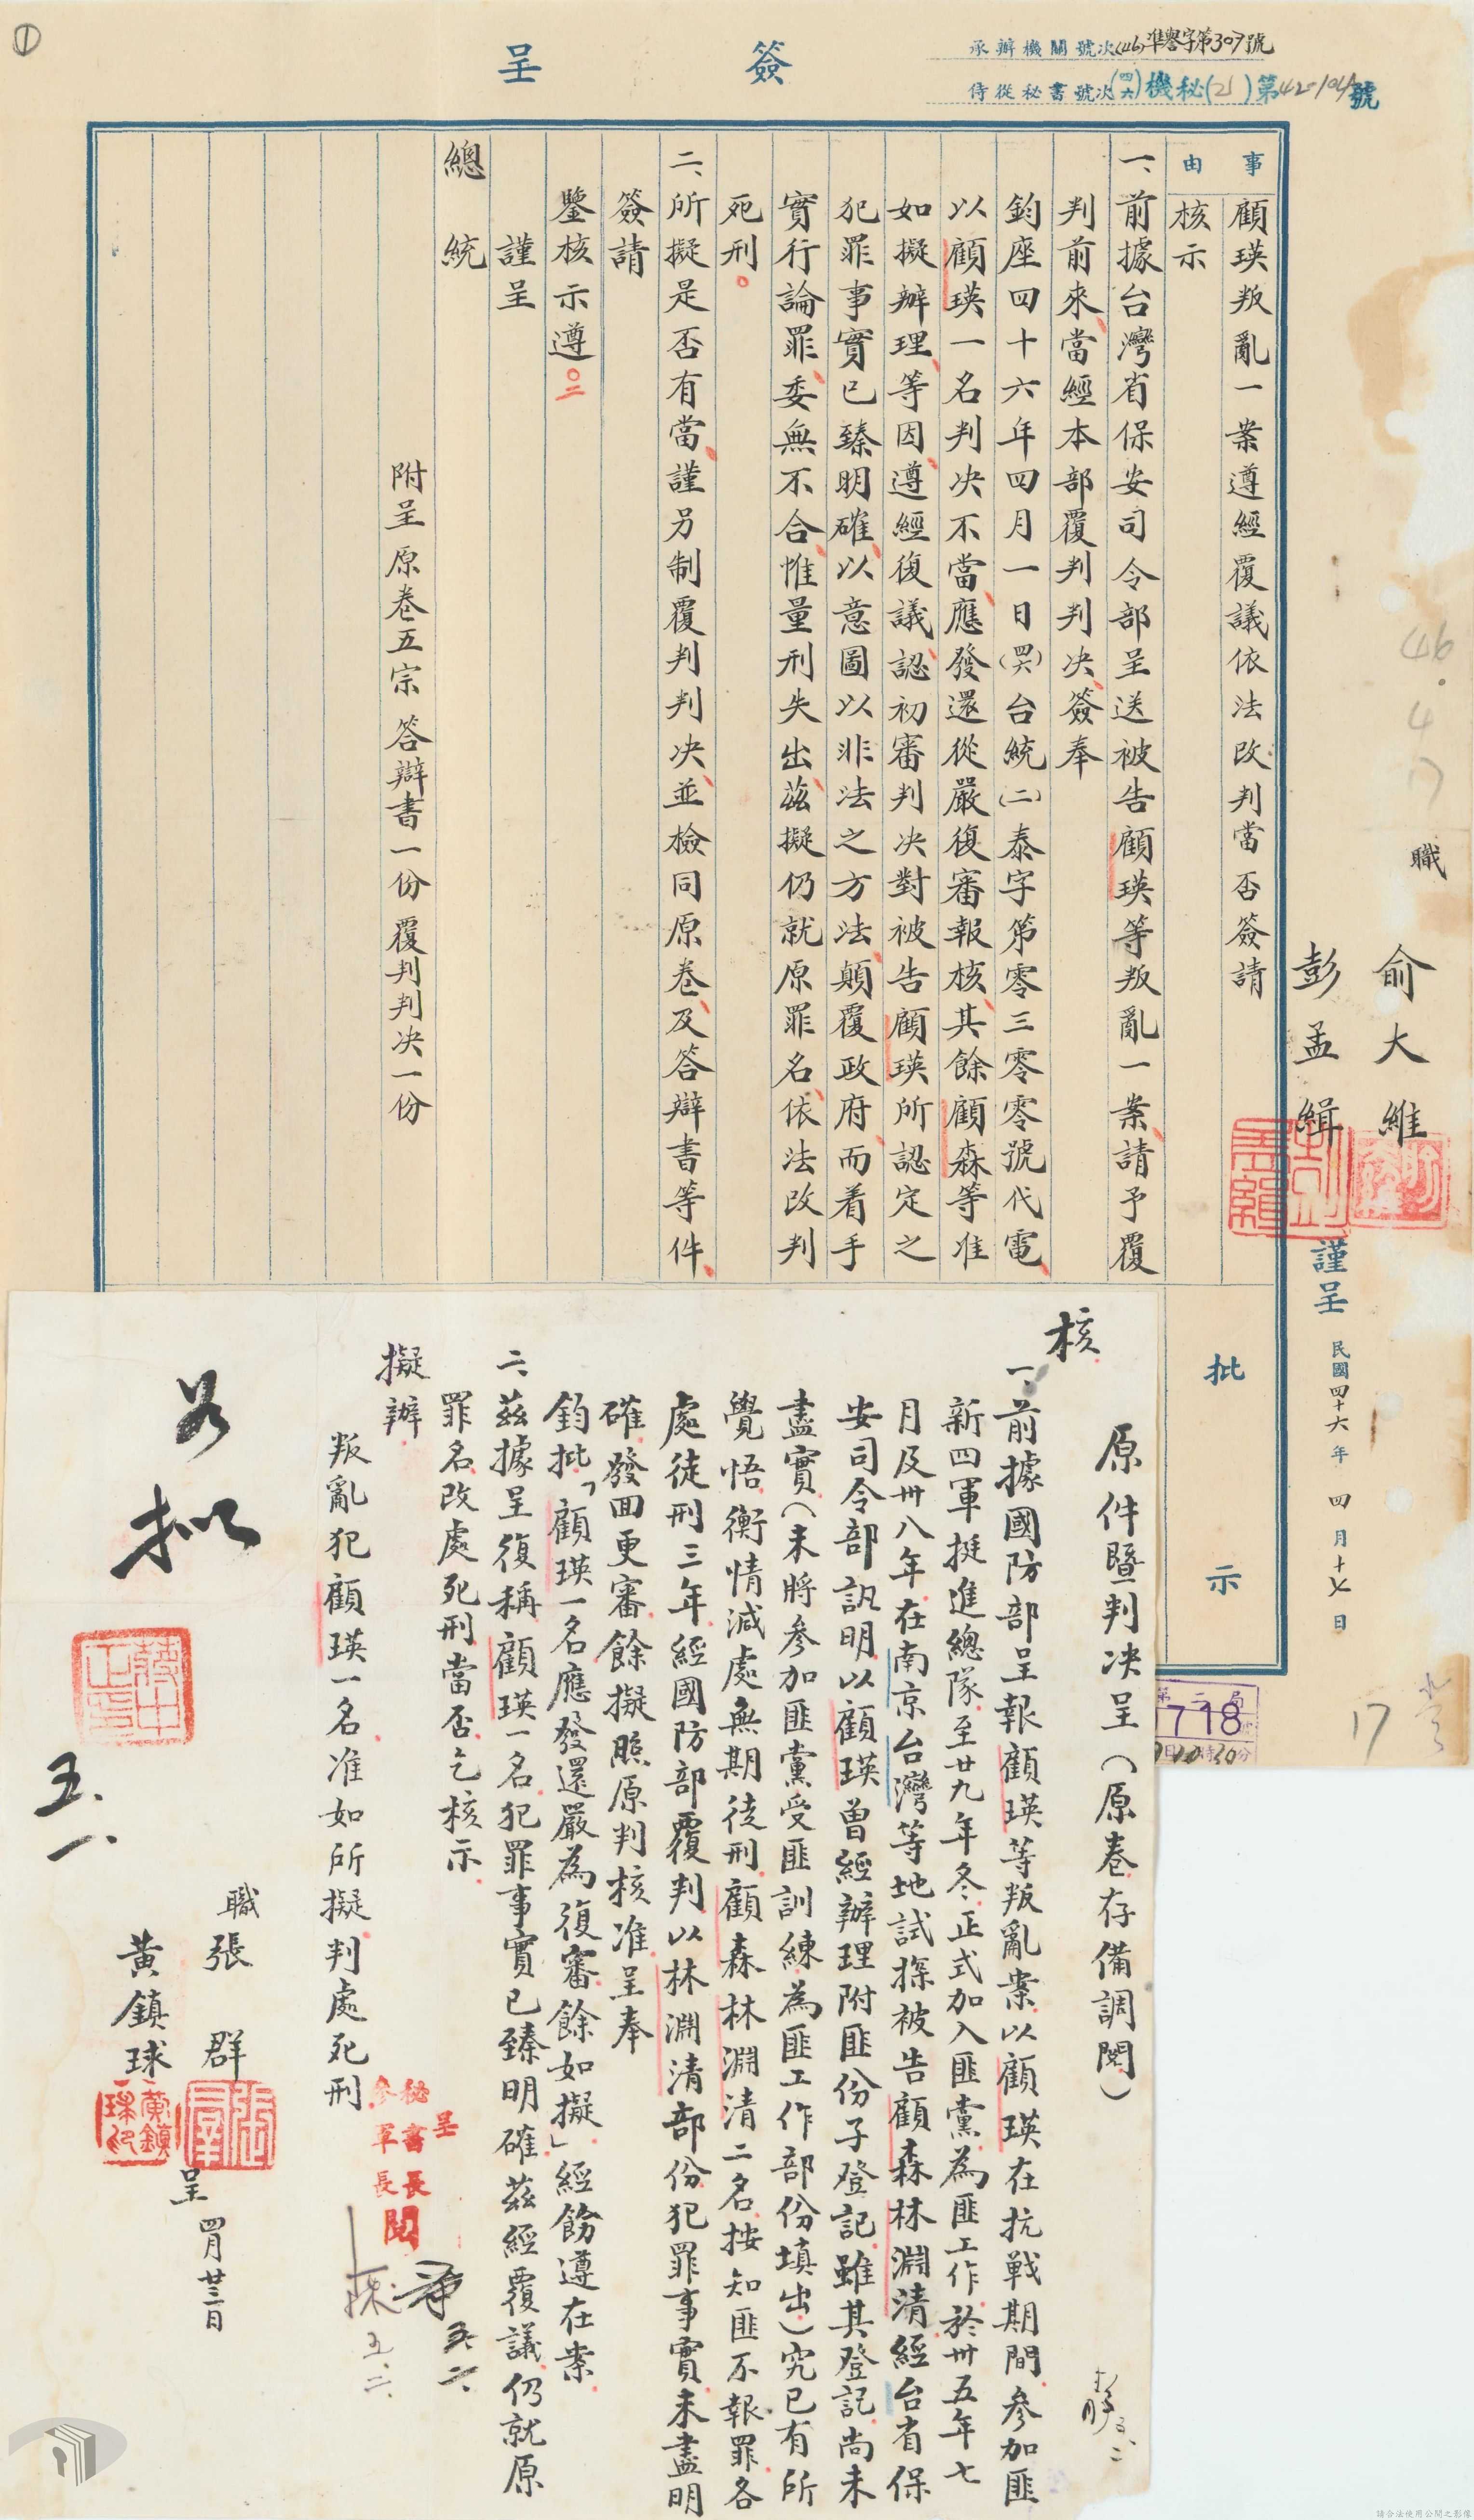 ①
簽呈
承辦機關號次(46)準譽字第307號
侍從秘書號次(四六)機秘(乙)第42-104號
事由
顧瑛叛亂一案遵經覆議依法改判當否簽請
核示
一、前據台灣省保安司令部呈送被告顧瑛等叛亂一案請予覆
判前來當經本部覆判判决簽奉
鈞座四十六年四月一日(四六)台統(二)泰字第零三零零號代電
以顧瑛一名判决不當應發還從嚴復審報核其餘顧森等准
如擬辦理等因遵經復議認初審判决對被告顧瑛所認定之
犯罪事實已臻明確以意圖以非法之方法顛覆政府而着手
實行論罪委無不合惟量刑失出茲擬仍就原罪名依法改判
死刑。
二、所擬是否有當謹另制覆判判决並檢同原卷及答辯書等件
簽請
鑒核示遵
謹呈
總統
附呈原卷五宗答辯書一份覆判判决一份
46.4.17
職
俞大維
彭孟緝
謹呈
民國四十六年四月十七日
批示
第二局
1718
17
核
原件暨判决呈(原卷存備調閱)
一、前據國防部呈報顧瑛等叛亂案以顧瑛在抗戰期間參加匪
新四軍挺進總隊至廿九年冬正式加入匪黨為匪工作於卅五年七
月及卅八年在南京台灣等地試探被告顧森林淵清經台省保
安司令部訊明以顧瑛曾經辦理附匪份子登記雖其登記尚未
盡實(未將參加匪黨受匪訓練為匪工作部份填出)究已有所
覺悟衡情減處無期徒刑顧森林淵清二名按知匪不報罪各
處徒刑三年經國防部覆判以林淵清部份犯罪事實未盡明
確發回更審餘擬照原判核准呈奉
鈞批「顧瑛一名應發還嚴為復審餘如擬」經飭遵在案
二、茲據呈復稱顧瑛一名犯罪事實已臻明確茲經覆議仍就原
罪名改處死刑當否乞核示
擬辦
叛亂犯顧瑛一名准如所擬判處死刑
職張群
黃鎮球
呈四月廿三日
呈
秘書長
參軍長
閱
五、二
五、二
如擬
五、一
請合法使用公開之影像